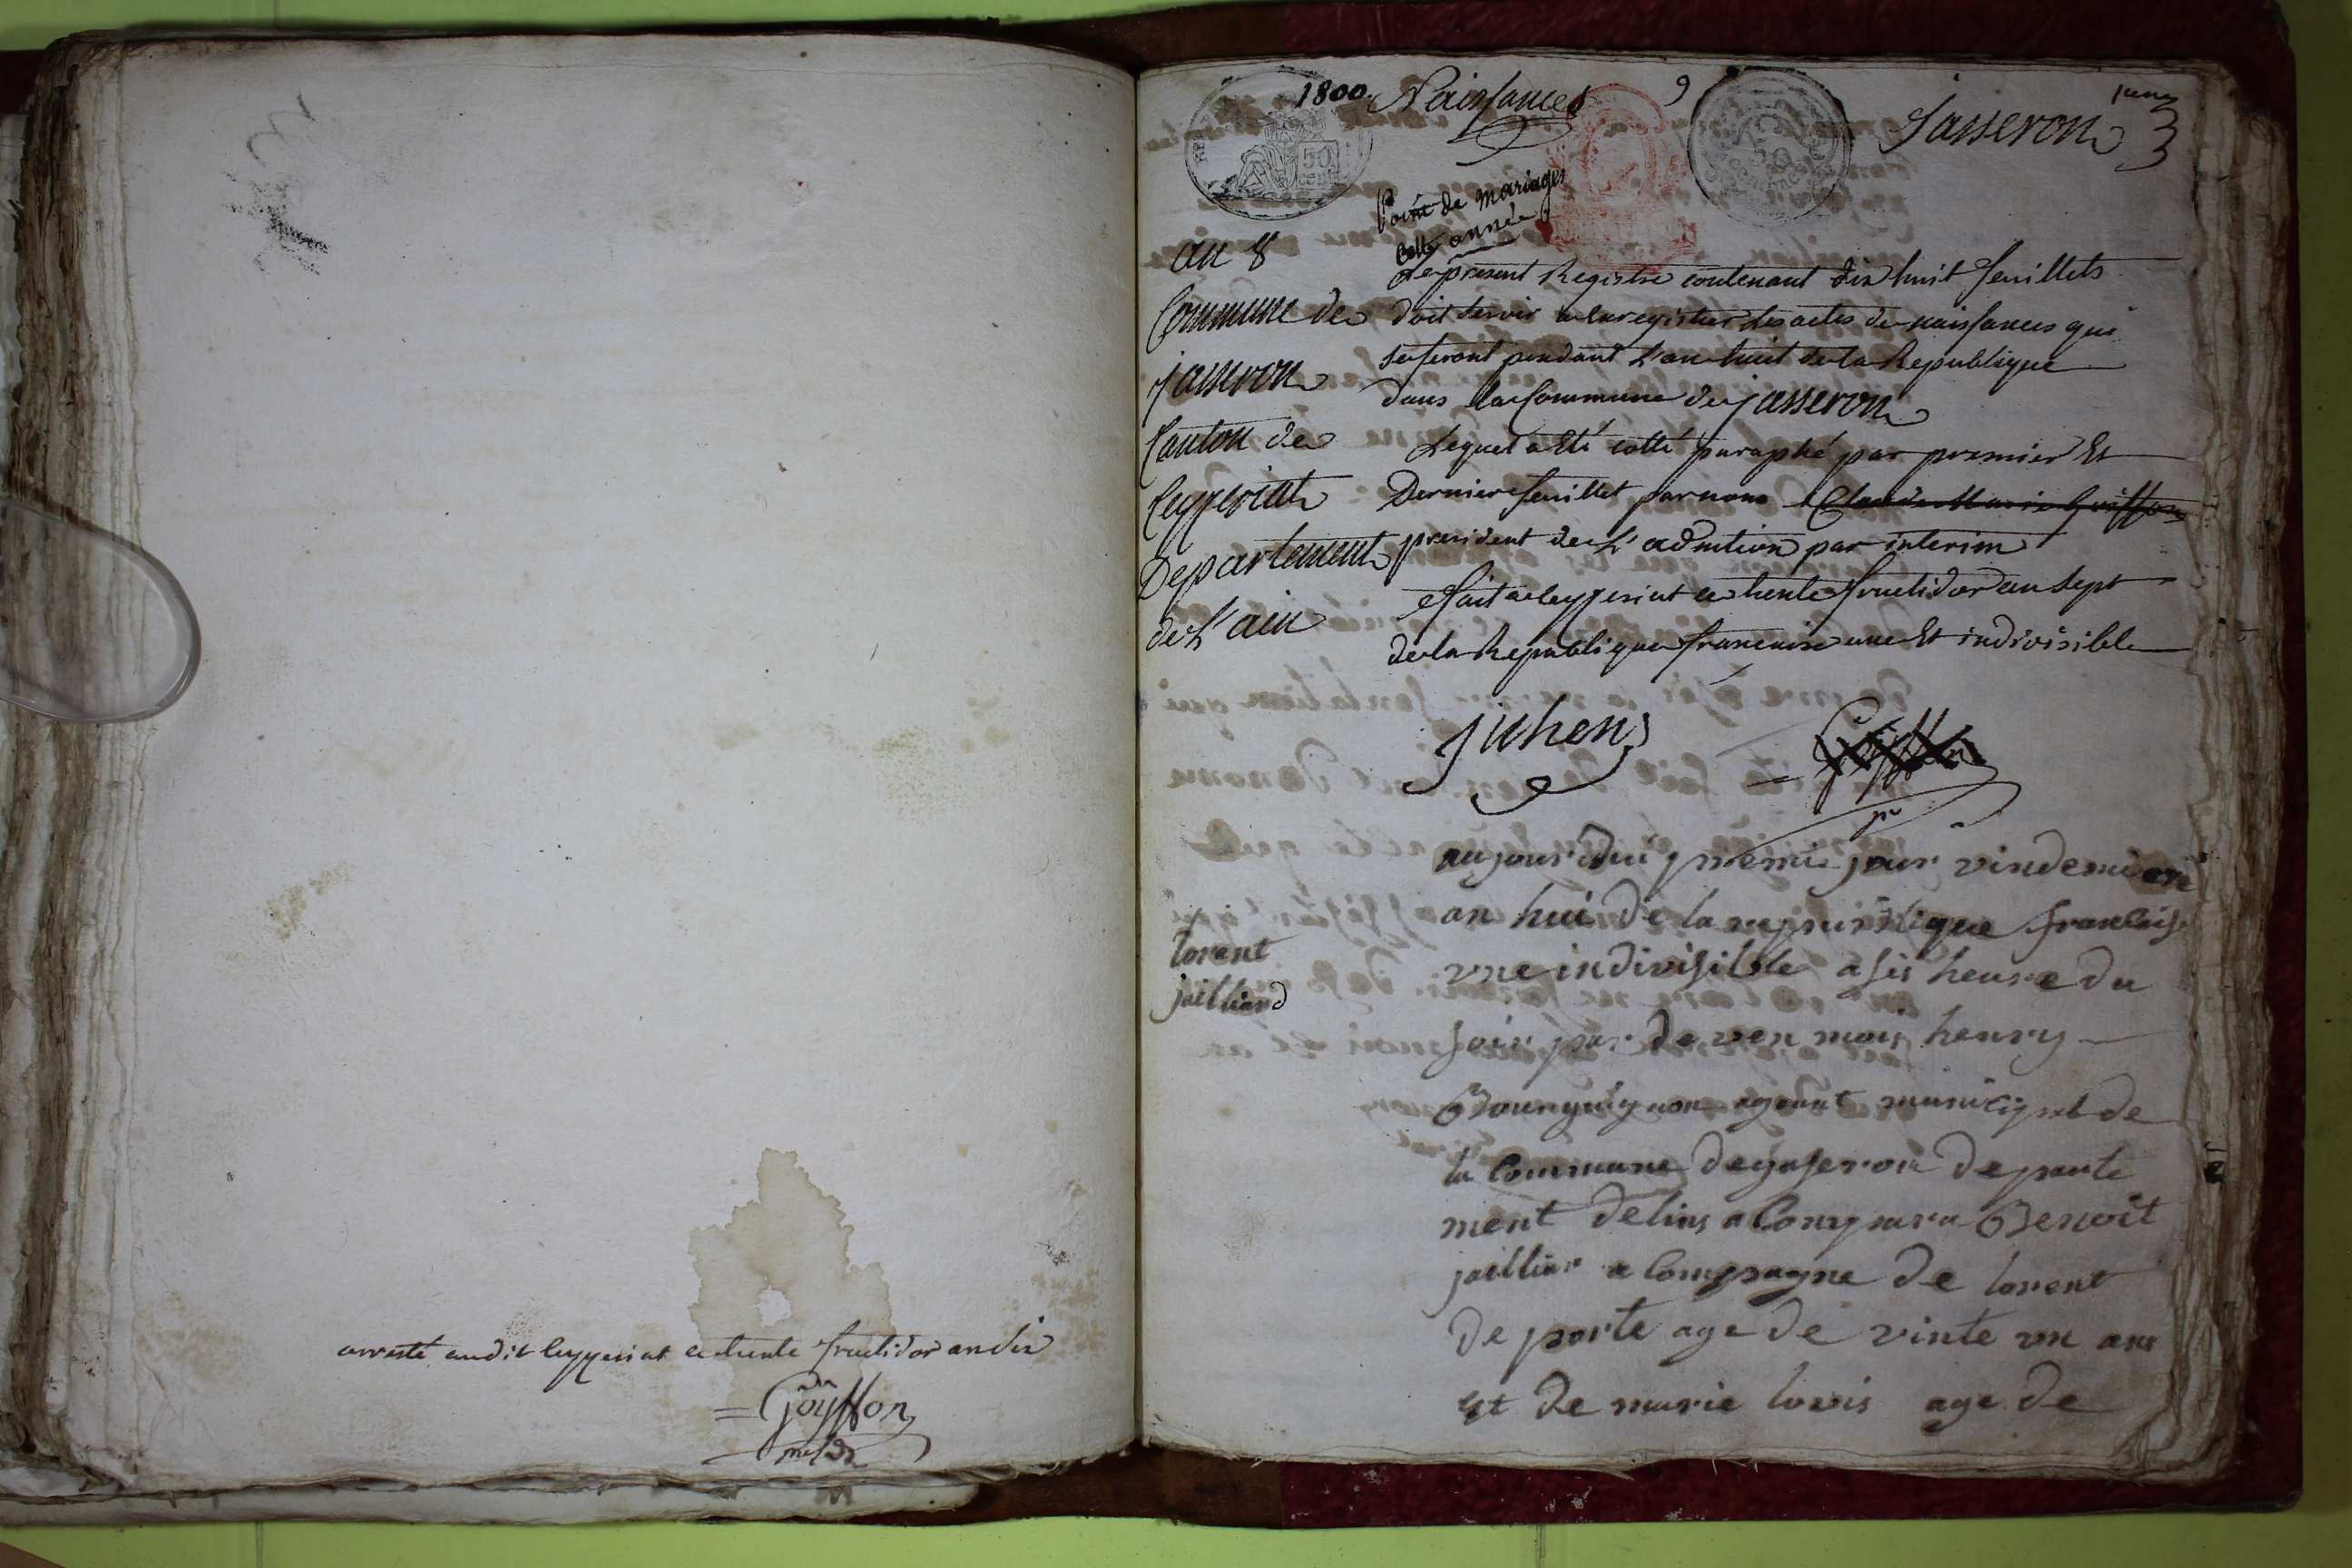 arresté audit Ceyzeriat ce trente fructidor an six
Goÿffon
1800. Naissances 9 Jasseron
Point de mariages
cette année
50
an 8
Commune de
jasseron
Canton de
Ceyzeriat
Departement
de L'ain
Le present Registre contenant dix huit feuillets
doit servir a Enregistrer Les actes de naissances qui
se feront pendant L'an huit de la Republique
dans la Commune de jasseron
Lequel a Eté cotté paraphé par premier Et
Dernier feuillet par nous Claude Marie Goiffon
president de L'admtion par interim
fait a Ceyzeriat ce trente fructidor an sept
de la Republique francaise une Et indivisible
lorent
jailliand
aujourdui premie jour vindemiere
an hui de la repuislique francaise
vne indivisible a sis heure du
soir par de ven moy henry
Bourguignon agent municipal de
la Commune de gaseron de parte
ment delins a Compara Benoit
jaillian a Compagne de lorent
de porte age de vinte un ans
et de marie lovis age de